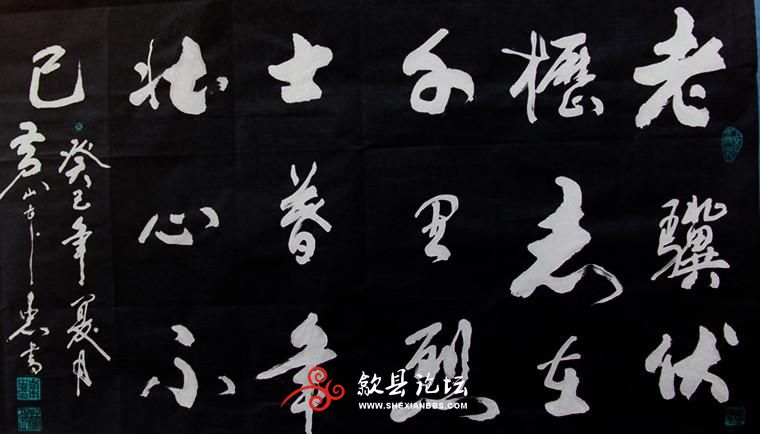 老骥伏
櫪志在
千里烈
士暮年
壮心不
已
癸巳年夏月
黄山
惠书
歙县论坛
WWW.SHEXIANBBS.COM